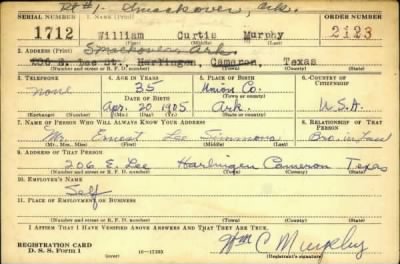 Rt #1- Smackover, Ark.
SERIAL NUMBER 1. NAME (Print) ORDER NUMBER
1712 William Curtis Murphy 2123
(First) (Middle) (Last)
2. ADDRESS (Print) Smackover Ark.
206 E. Lee St., Harlingen, Cameron, Texas
(Number and street or R. F. D. number) (Town) (County) (State)
3. TELEPHONE 4. AGE IN YEARS 5. PLACE OF BIRTH 6. COUNTRY OF CITIZENSHIP
none 35 Union Co.
DATE OF BIRTH (Town or county)
Apr. 20 1905 Ark. U.S.A.
(Exchange) (Number) (Mo.) (Day) (Yr.) (State or country)
7. NAME OF PERSON WHO WILL ALWAYS KNOW YOUR ADDRESS 8. RELATIONSHIP OF THAT PERSON
Mr. Ernest Lee Simmons Bro. in Law
(Mr., Mrs., Miss) (First) (Middle) (Last)
9. ADDRESS OF THAT PERSON
206 E. Lee Harlingen Cameron Texas
(Number and street or R. F. D. number) (Town) (County) (State)
10. EMPLOYER'S NAME
Self
11. PLACE OF EMPLOYMENT OR BUSINESS
(Number and street or R. F. D. number) (Town) (County) (State)
I AFFIRM THAT I HAVE VERIFIED ABOVE ANSWERS AND THAT THEY ARE TRUE.
REGISTRATION CARD
D. S. S. Form 1 16-17105 Wm C Murphy
(Registrant's signature)